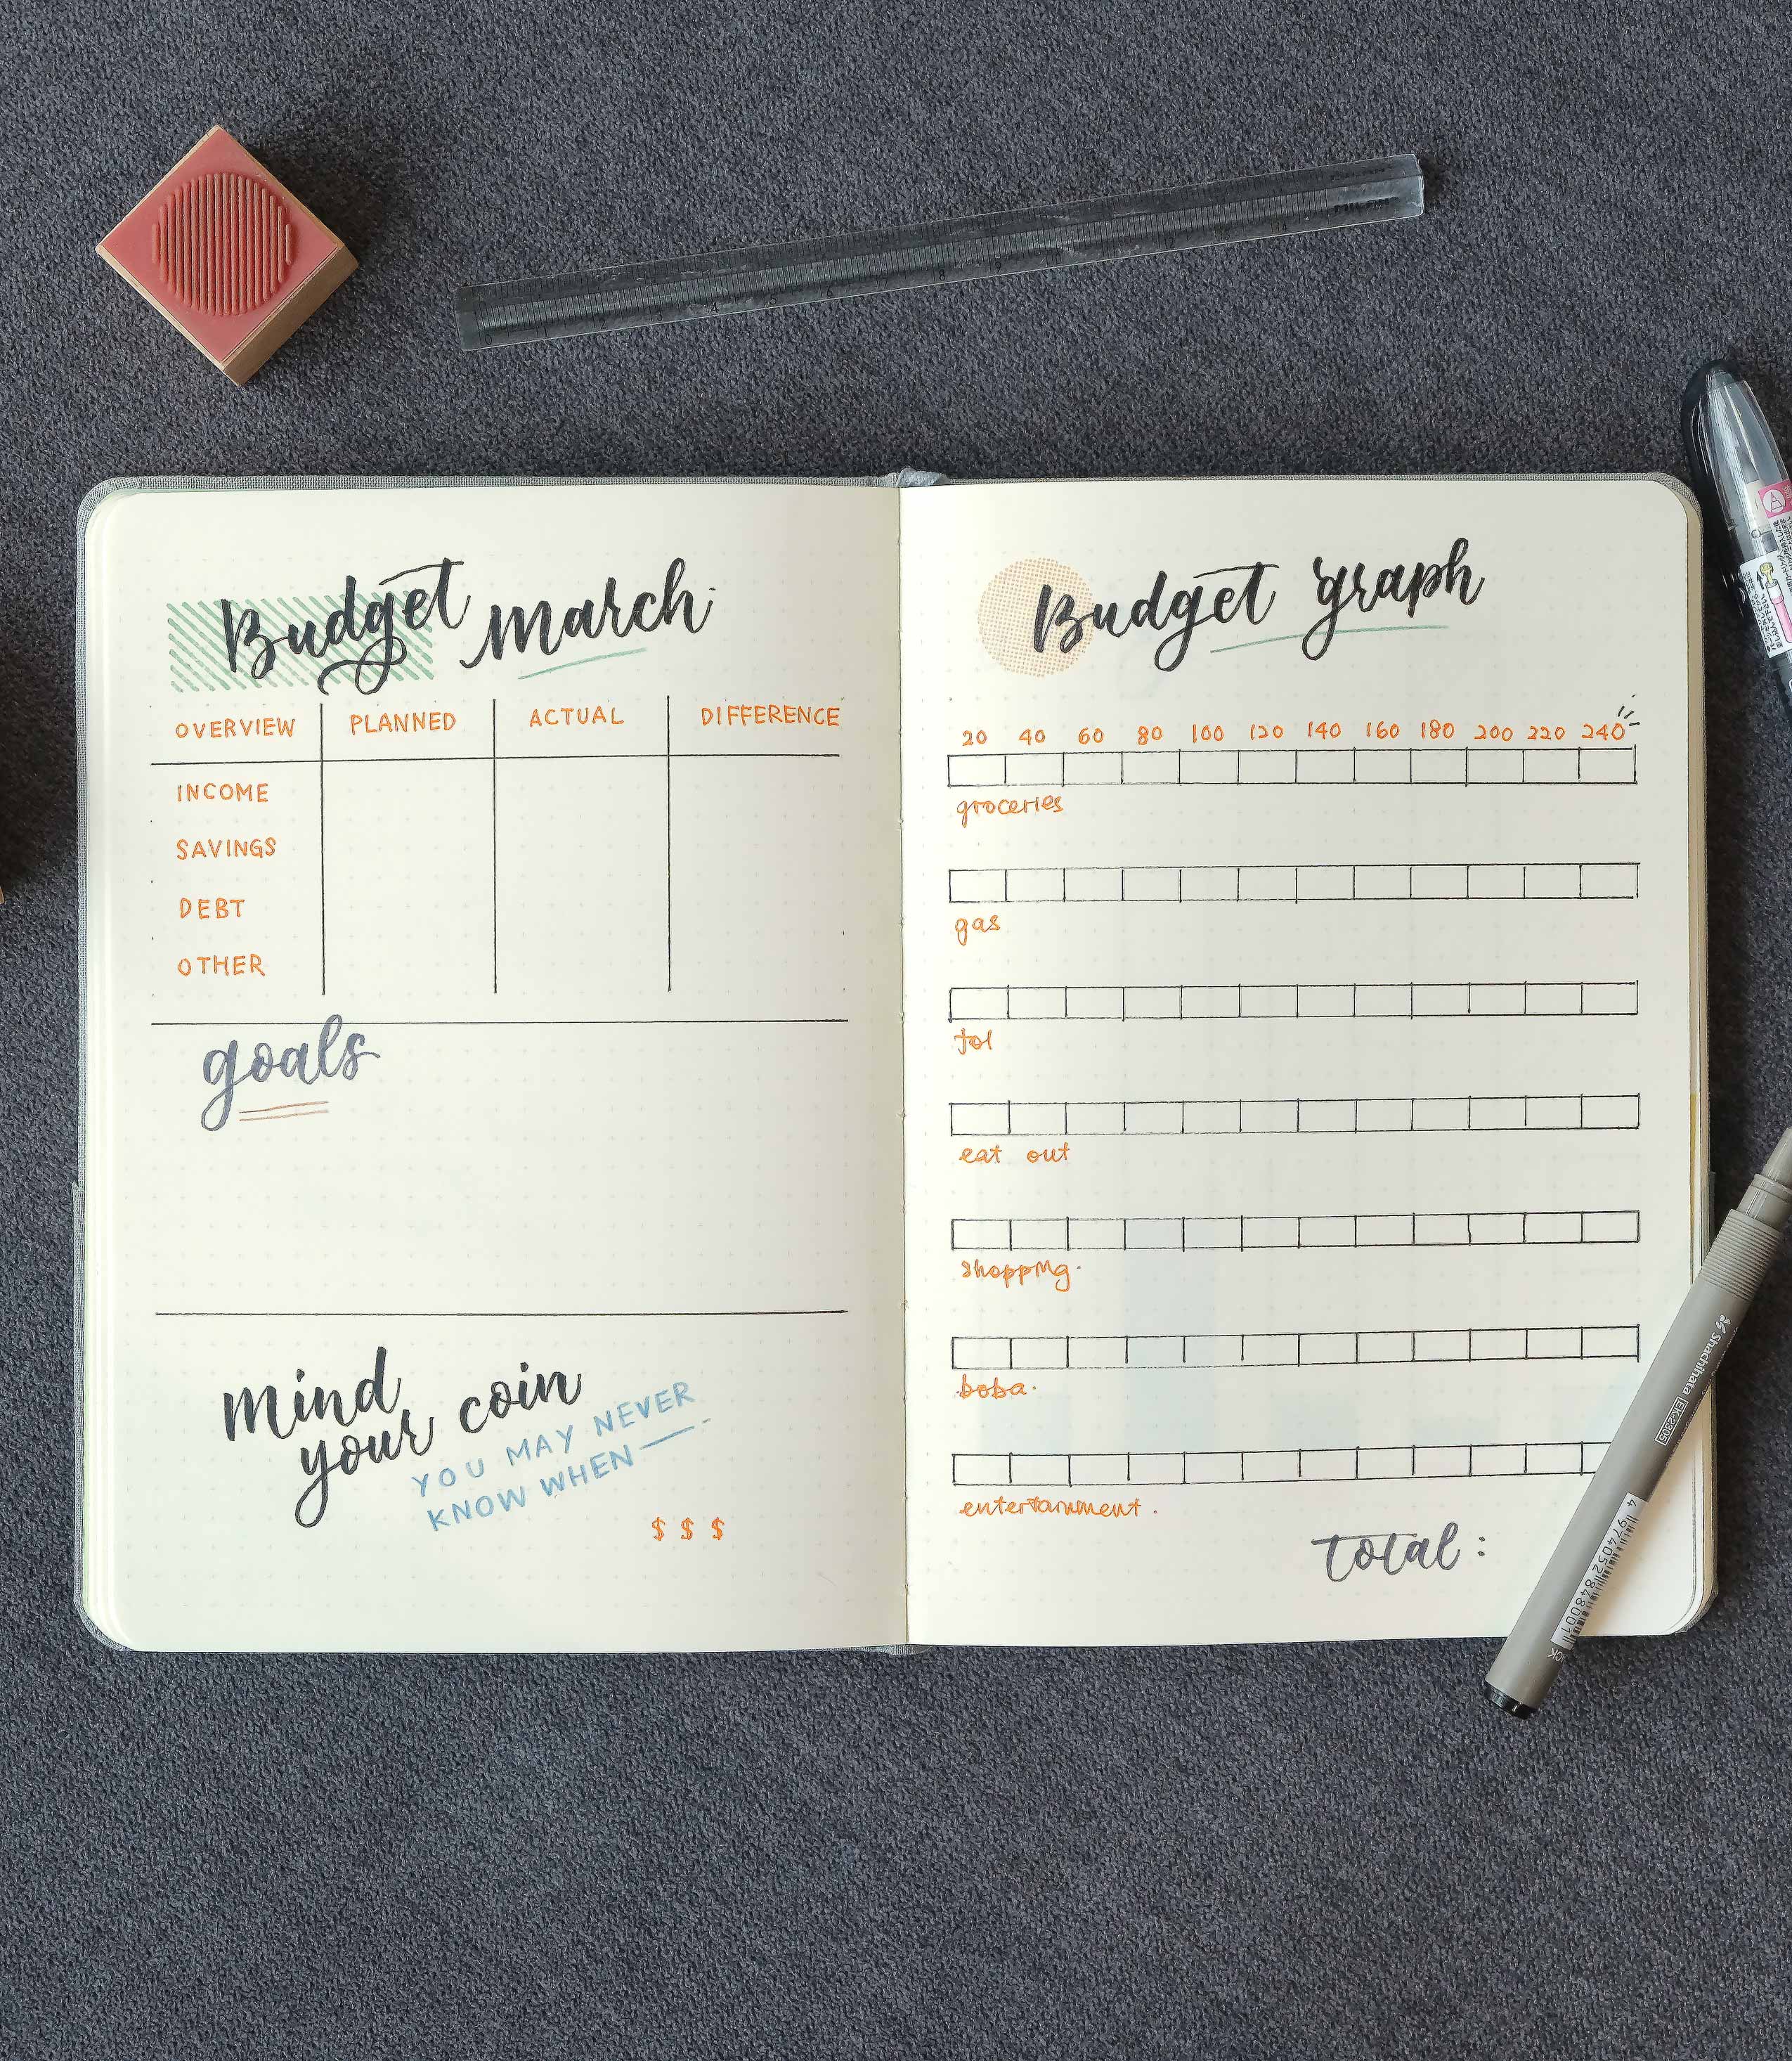 Budget March
OVERVIEW PLANNED ACTUAL DIFFERENCE
INCOME
SAVINGS
DEBT
OTHER
goals
Mind
your coin
YOU MAY NEVER
KNOW WHEN —
$ $ $
Budget graph
20 40 60 80 100 120 140 160 180 200 220 240
groceries
gas
tol
eat out
shopping.
boba.
entertainment.
total:
Shachihata EK-230S
4 974052 848001